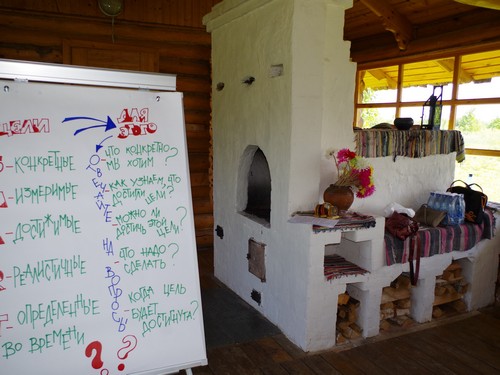 ЦЕЛИ
ДЛЯ
ЭТОГО
- КОНКРЕТНЫЕ
- ИЗМЕРИМЫЕ
- ДОСТИЖИМЫЕ
- РЕАЛИСТИЧНЫЕ
- ОПРЕДЕЛЕННЫЕ
ВО ВРЕМЕНИ
ОТВЕЧАЙТЕ НА ВОПРОСЫ
- ЧТО КОНКРЕТНО
МЫ ХОТИМ?
- КАК УЗНАЕМ, ЧТО
ДОСТИГЛИ ЦЕЛИ?
- МОЖНО ЛИ
ДОСТИЧЬ ЭТОЙ ЦЕЛИ?
- ЧТО НАДО
СДЕЛАТЬ?
- КОГДА ЦЕЛЬ
БУДЕТ
ДОСТИГНУТА?
? ?